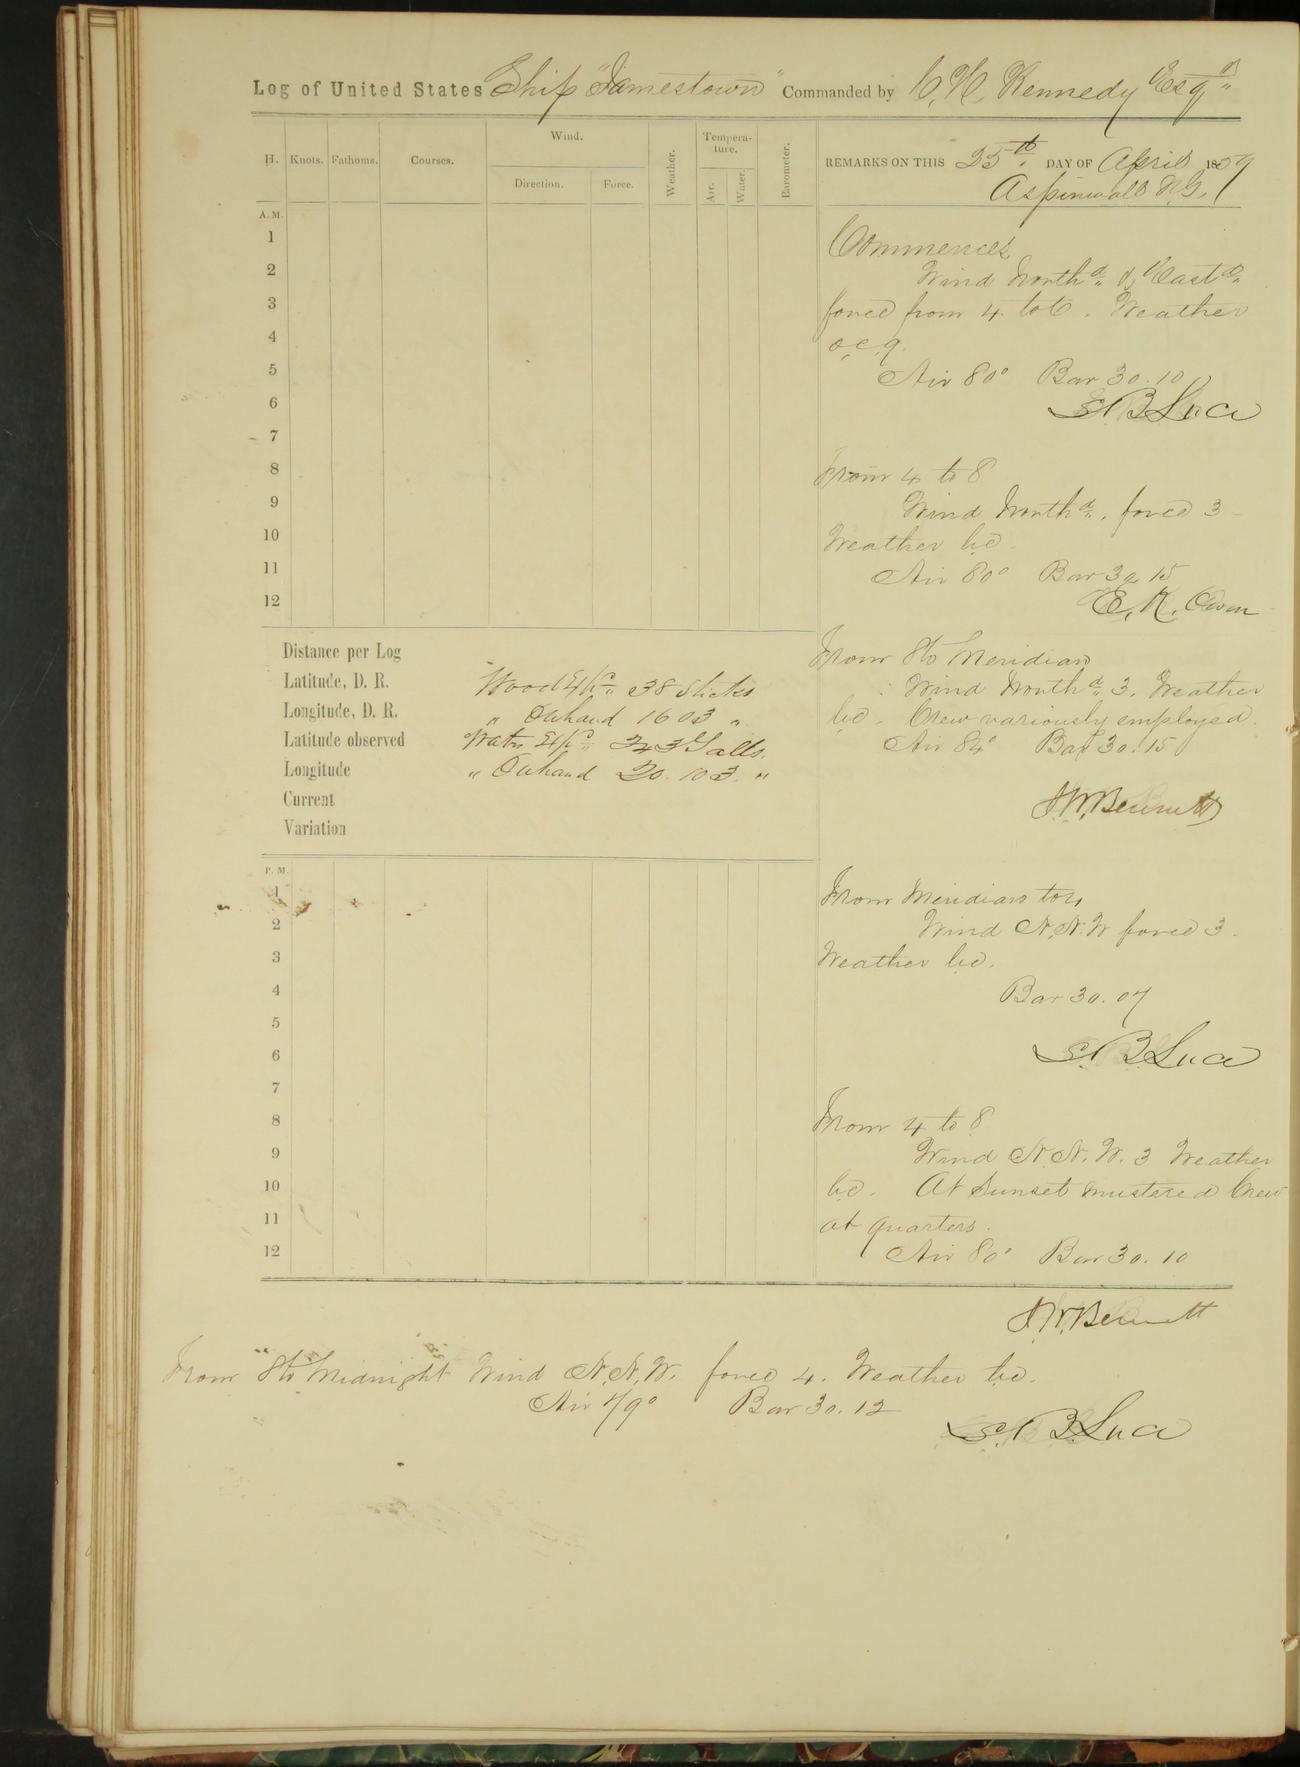 Log of United States Ship "Jamestown" Commanded by C. H. Kennedy Esqr
H. Knots. Fathoms. Courses. Wind. Direction. Force. Weather. Tempera-ture. Air. Water. Barometer.
REMARKS ON THIS 25th DAY OF April 1859
Aspinwall N.G.
A. M.
1
2
3
4
5
6
7
8
9
10
11
12
Commences
Wind Northd & Eastd
force from 4 to 6. Weather
o,c,q.
Air 80° Bar 30.10
S. B. Luce
From 4 to 8
Wind Northd, force 3
Weather b.c.
Air 80° Bar 30.15
E. K. Owen
From 8 to Meridian
Wind Northd 3. Weather
b.c. Crew variously employed.
Air 84° Bar 30.15
J. W. Bennett
Distance per Log
Latitude, D. R.
Longitude, D. R.
Latitude observed
Longitude
Current
Variation
Wood Expd 38 Sticks
" On hand 1603 "
Water Expd 243 Galls.
" On hand 20.103. "
P. M.
1
2
3
4
5
6
7
8
9
10
11
12
From Meridian to 4
Wind N.N.W force 3
Weather b.c.
Bar 30.07
S. B. Luce
From 4 to 8
Wind N.N.W. 3 Weather
b.c. At Sunset mustered Crew
at quarters.
Air 80° Bar 30.10
J. W. Bennett
From 8 to Midnight Wind N.N.W. force 4. Weather b.c.
Air 79° Bar 30.12
S. B. Luce